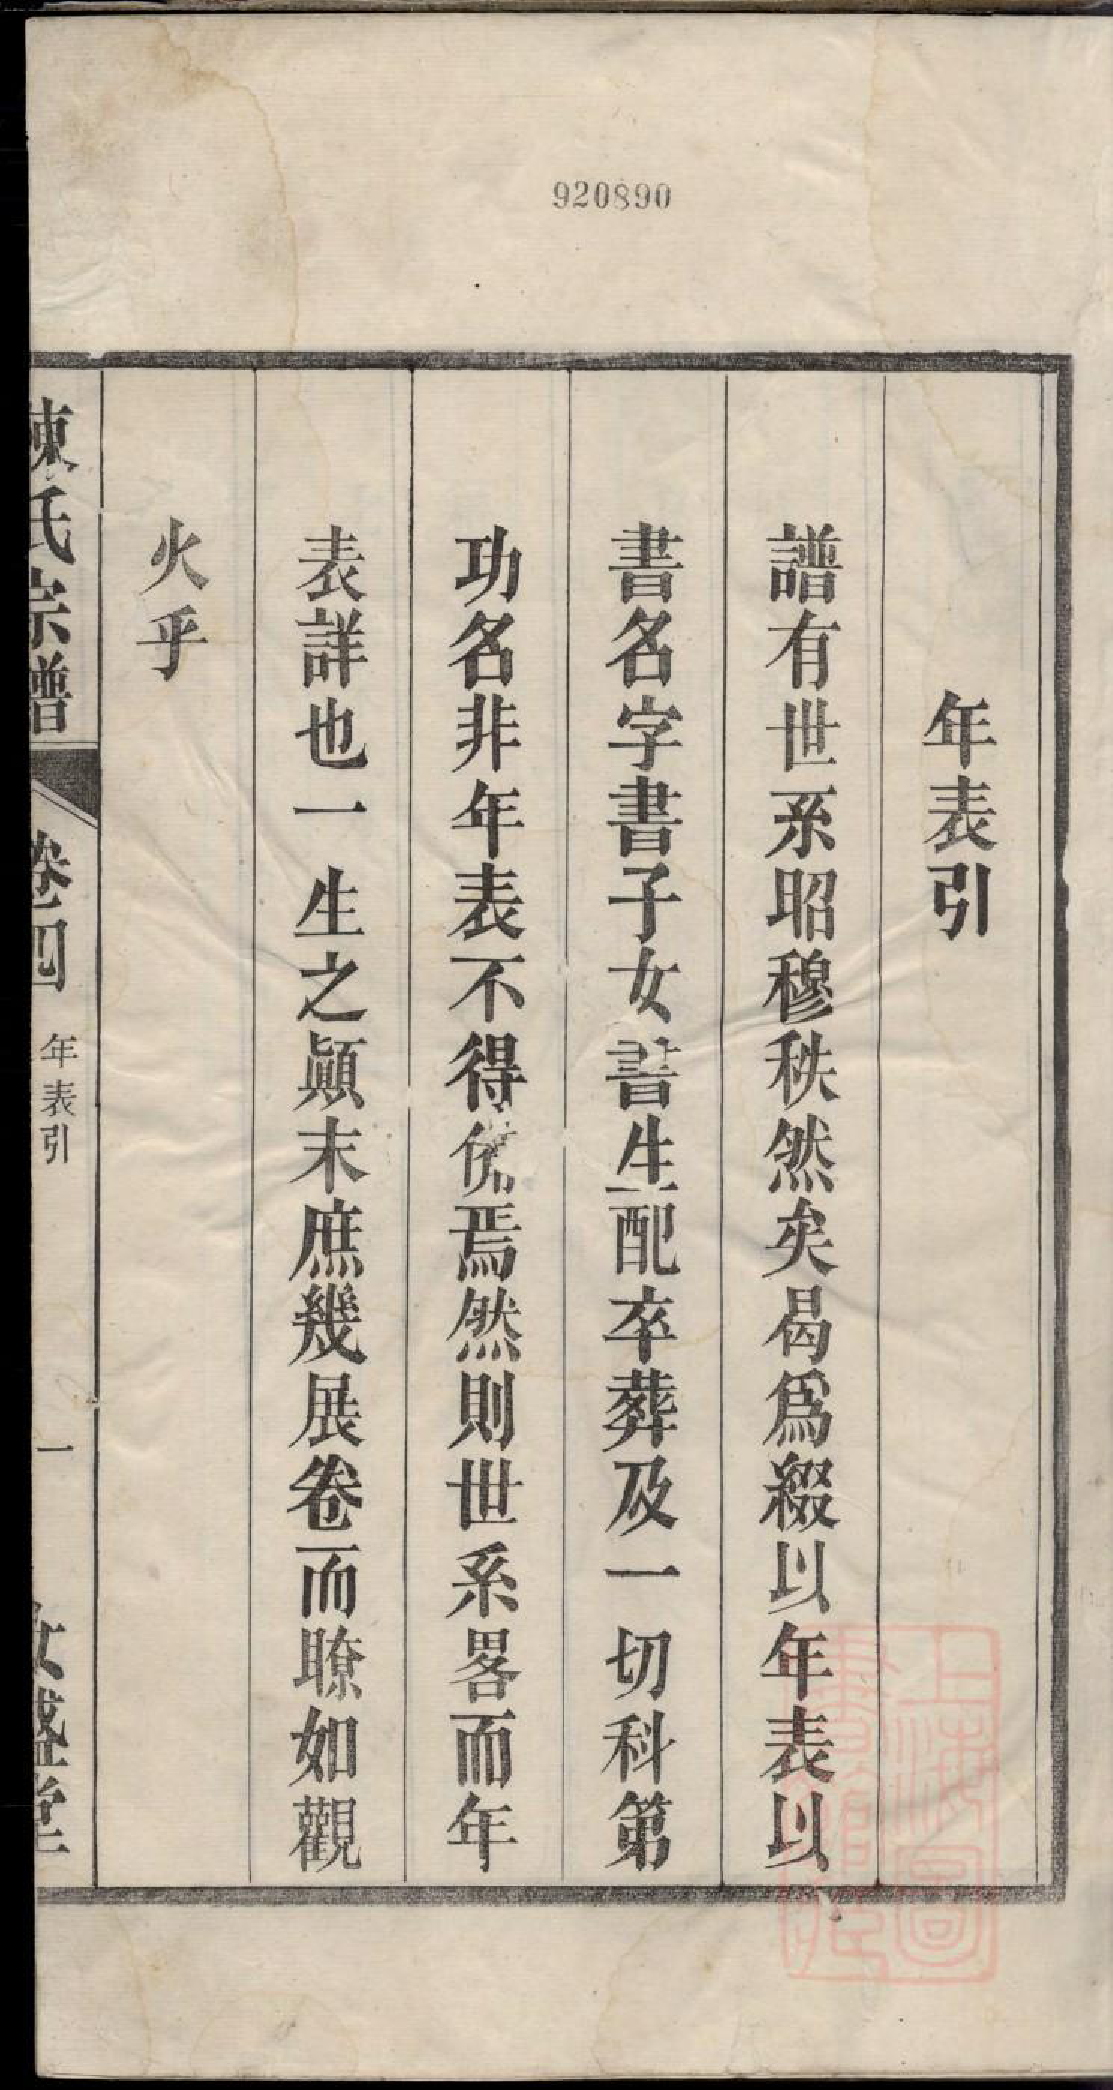 920890
年表引
譜有世系昭穆秩然矣曷爲綴以年表以
書名字書子女書生配卒葬及一切科第
功名非年表不得備焉然則世系畧而年
表詳也一生之顚末庶幾展卷而瞭如觀
火乎
陳氏宗譜
卷四
年表引
一
盛堂
上海圖書館藏